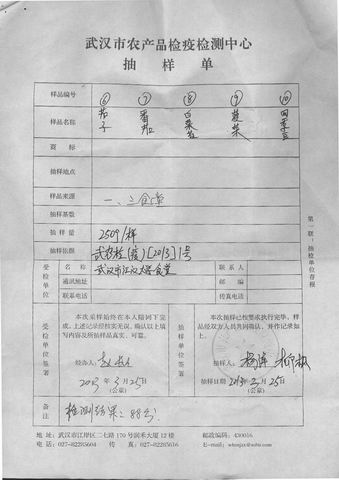 武汉市农产品检疫检测中心
抽 样 单
样品编号 ⑥ ⑦ ⑧ ⑨ ⑩
样品名称 茄子 番茄 白菜苔 菠菜 四季豆
商 标
抽样地点
样品来源 一、三食堂
抽样基数
抽 样 量 250g/样
抽样依据 武农检(疫)[2013]1号
受检单位 名 称 武汉市江汉大学食堂 联 系 人
通讯地址 邮 编
联系电话 传真电话
受检单位签署 本次采样始终在本人陪同下完成,上述记录经核实无误,确认以上填写内容及所抽样品真实、可靠。
经办人:
2013年3月25日
(公章)
抽样单位签署 本次抽样已按要求执行完毕,样品经双方人员共同确认,并作记录如上。
抽样人:
抽样日期 2013年3月25日
(公章)
备注 检测结果:合格
第一联:抽检单位存根
地 址:武汉市江岸区二七路170号润禾大厦12楼 邮政编码:430016
电 话:027-82285604 传 真:027-82285616 E-mail: